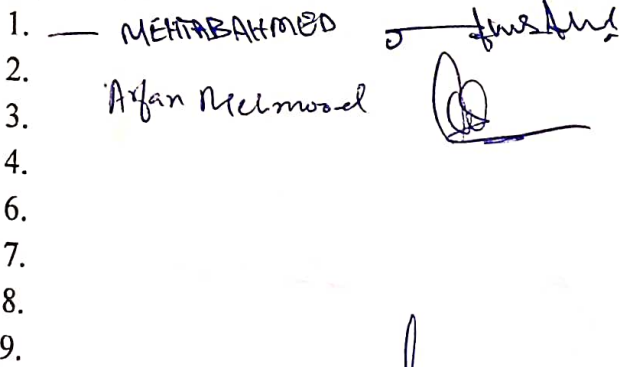 1. — MEHTABAHMED
2.
Arfan Mehmood
3.
4.
6.
7.
8.
9.